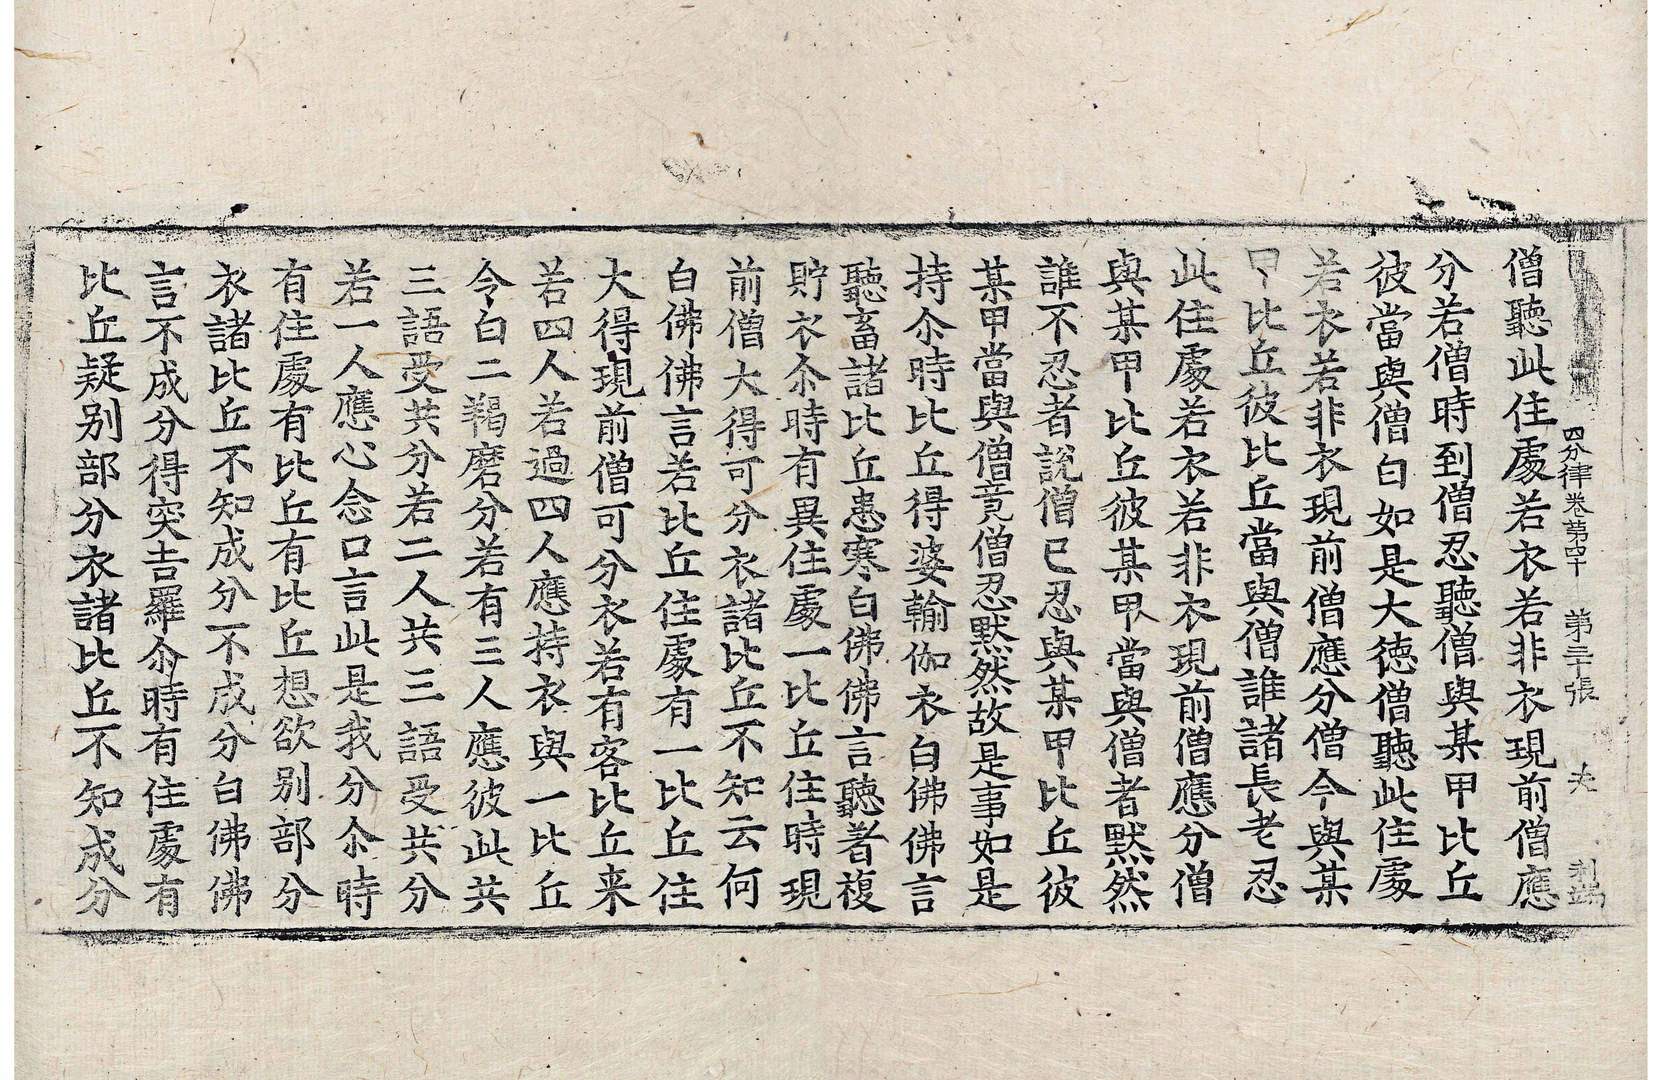 四分律卷第四十 第三十張 夫 利端
僧聽此住處若衣若非衣現前僧應
分若僧時到僧忍聽僧與某甲比丘
彼當與僧白如是大德僧聽此住處
若衣若非衣現前僧應分僧今與某
甲比丘彼比丘當與僧誰諸長老忍
此住處若衣若非衣現前僧應分僧
與某甲比丘彼某甲當與僧者默然
誰不忍者說僧已忍與某甲比丘彼
某甲當與僧竟僧忍默然故是事如是
持尒時比丘得婆輸伽衣白佛佛言
聽畜諸比丘患寒白佛佛言聽著複
貯衣尒時有異住處一比丘住時現
前僧大得可分衣諸比丘不知云何
白佛佛言若比丘住處有一比丘住
大得現前僧可分衣若有客比丘来
若四人若過四人應持衣與一比丘
令白二羯磨分若有三人應彼此共
三語受共分若二人共三語受共分
若一人應心念口言此是我分尒時
有住處有比丘有比丘想欲别部分
衣諸比丘不知成分不成分白佛佛
言不成分得突吉羅尒時有住處有
比丘疑别部分衣諸比丘不知成分